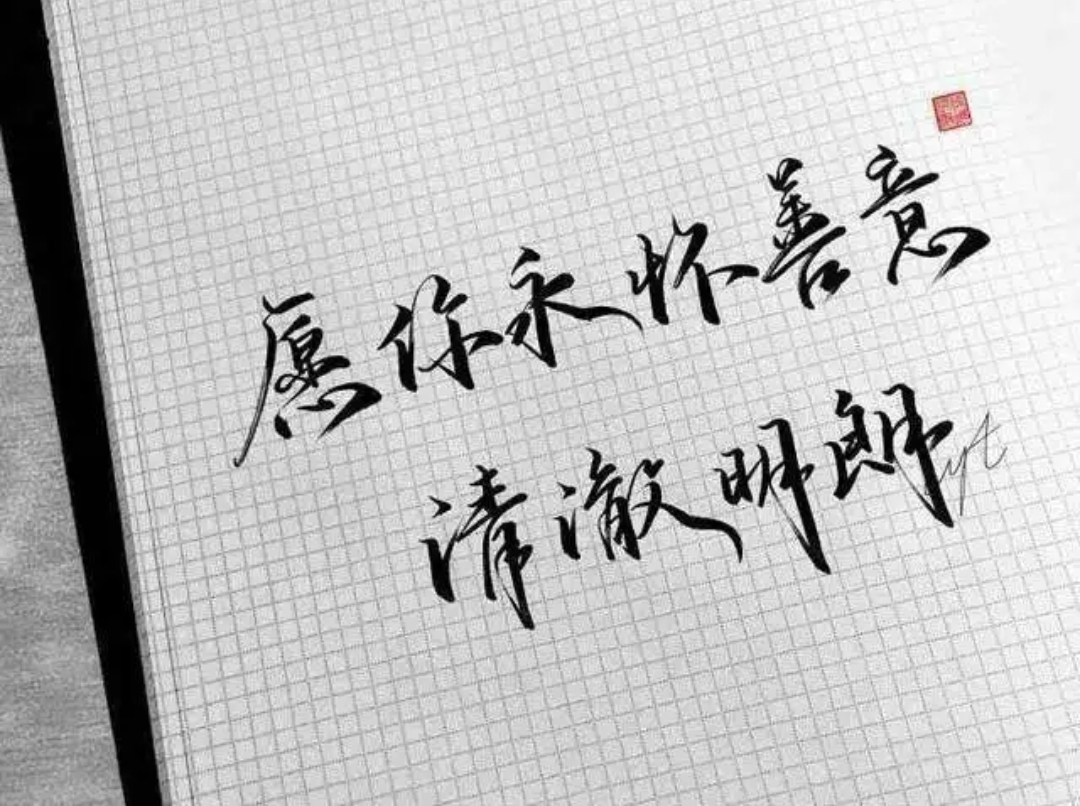 愿你永怀善意
清澈明朗